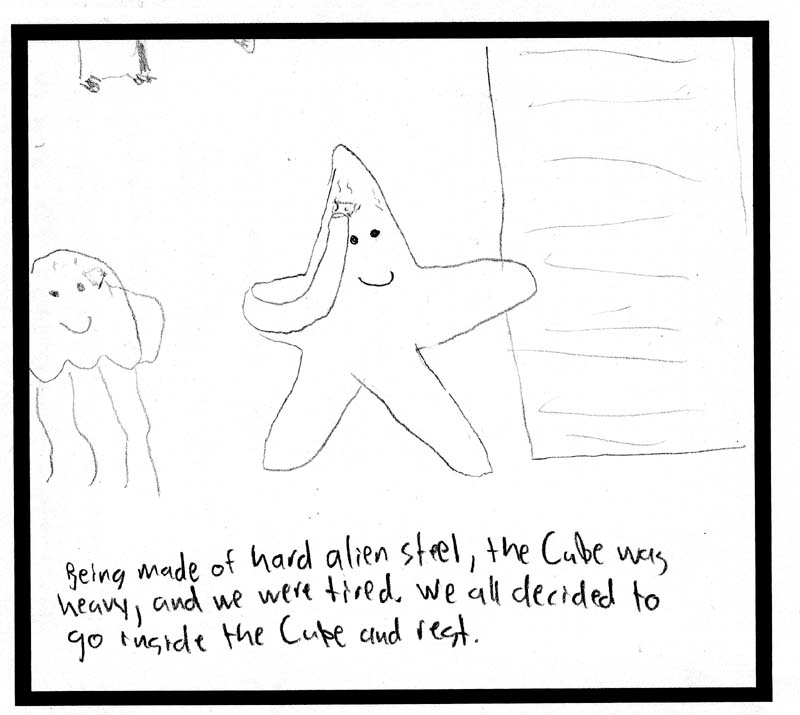 Being made of hard alien steel, the Cube was
heavy, and we were tired. We all decided to
go inside the Cube and rest.